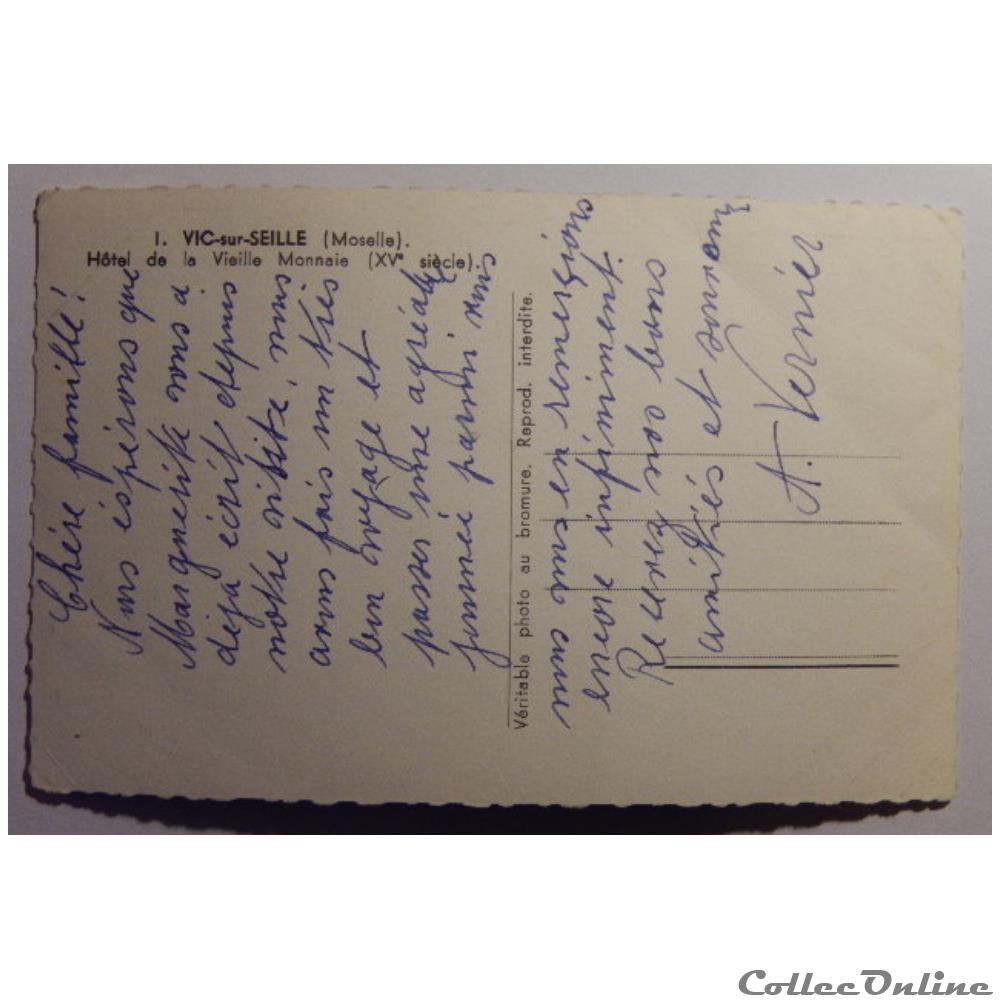 1. VIC-sur-SEILLE (Moselle).
Hôtel de la Vieille Monnaie (XVe siècle).
Chére famille!
Nous éspérons que
Marguerite vous a
dejà écrit depuis
nôtre visite, nous
avons fais un très
bon voyage et
passer une agréable
journée parmi vous
nous vous remercions
encore infiniment.
Recevez nos bons
amitiés et souvenir
A. Vernier
Véritable photo au bromure. Reprod. interdite.
CollecOnline